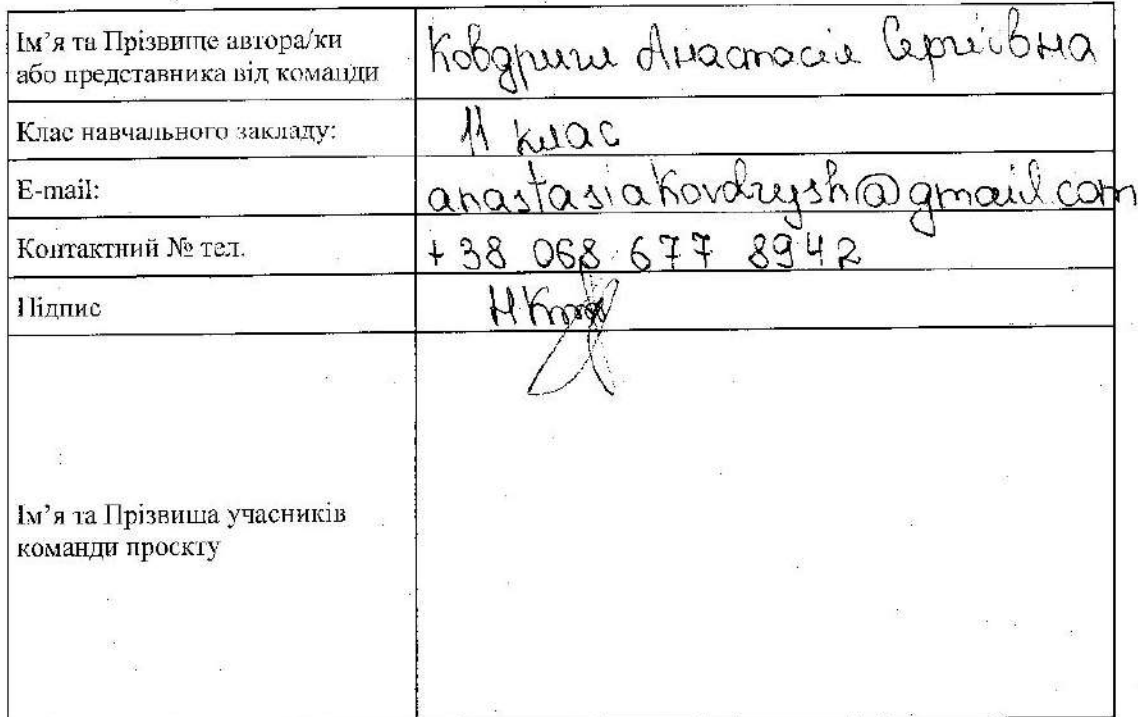 Ім’я та Прізвище автора/ки
або представника від команди
Ковдриш Анастасія Сергіївна
Клас навчального закладу:
11 клас
E-mail:
anastasiakovdrysh@gmail.com
Контактний № тел.
+38 068 677 8942
Підпис
Ім’я та Прізвища учасників
команди проєкту